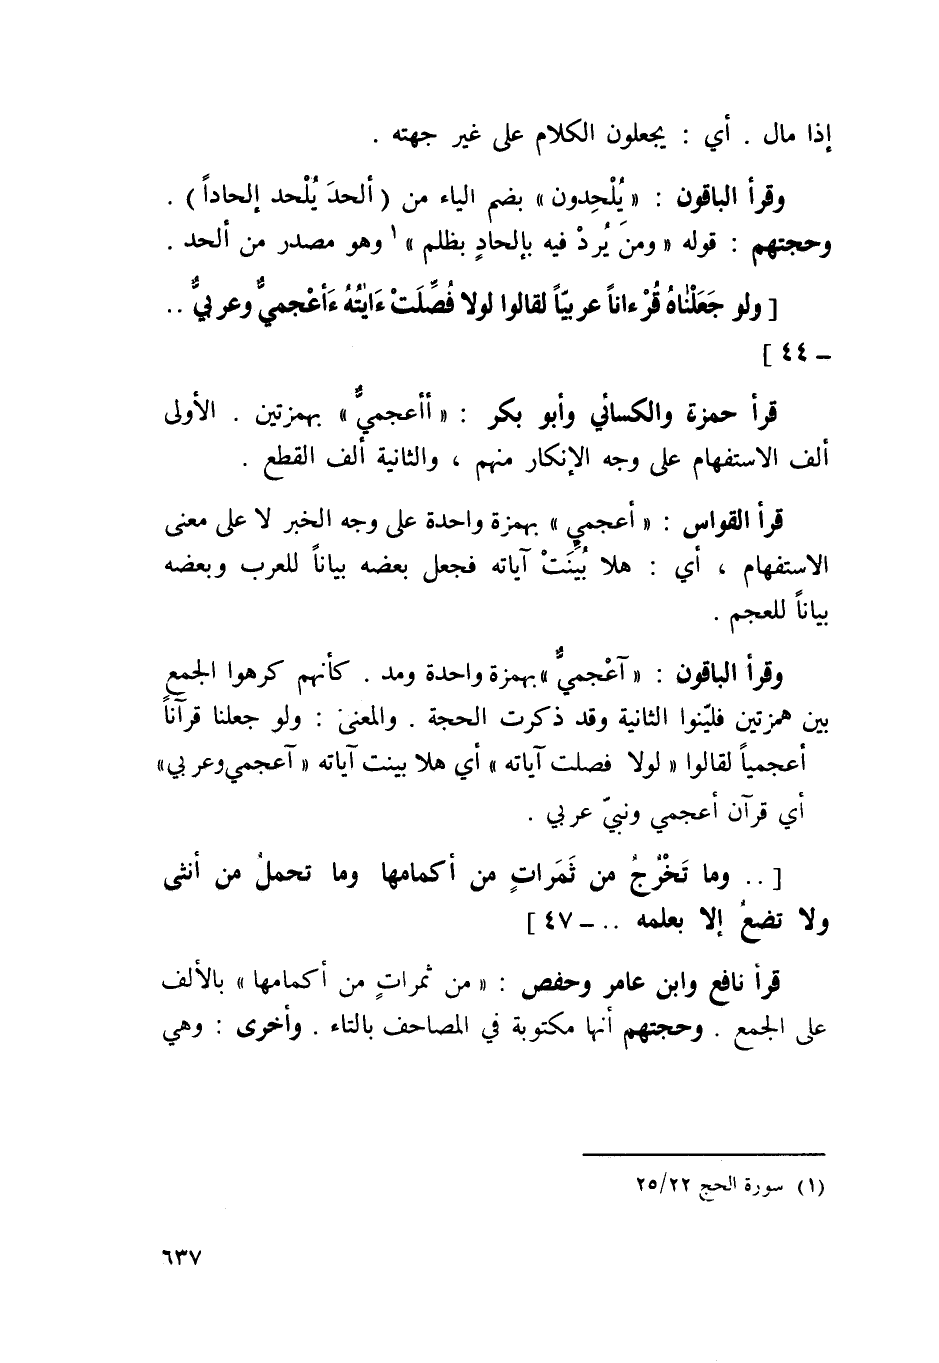 إذا مال . أي : يجعلون الكلام على غير جهته .
وقرأ الباقون : « يُلْحِدون » بضم الياء من ( ألحدَ يُلْحد إلحاداً ) .
وحجتهم : قوله « ومن يُردْ فيه بإلحادٍ بظلم »¹ وهو مصدر من ألحد .
[ ولو جَعَلْنٰاهُ قُرْءاناً عربيّاً لقالوا لولا فُصِّلَتْ ءَايٰتُهُ ءَأعْجميٌّ وعربيٌّ ..
ـ ٤٤ ]
قرأ حمزة والكسائي وأبو بكر : « أأعجميٌّ » بهمزتين . الأولى
ألف الاستفهام على وجه الإنكار منهم ، والثانية ألف القطع .
قرأ القواس : « أعجمي » بهمزة واحدة على وجه الخبر لا على معنى
الاستفهام ، أي : هلا بُيِّنَتْ آياته فجعل بعضه بياناً للعرب وبعضه
بياناً للعجم .
وقرأ الباقون : « آعْجميٌّ » بهمزة واحدة ومد . كأنهم كرهوا الجمع
بين همزتين فليّنوا الثانية وقد ذكرت الحجة . والمعنى : ولو جعلنا قرآناً
أعجمياً لقالوا « لولا فصلت آياته » أي هلا بينت آياته « آعجمي وعربي»
أي قرآن أعجمي ونبيّ عربي .
[ .. وما تَخْرُجُ من ثَمَراتٍ من أكمامها وما تحملُ من أنثى
ولا تضعُ إلا بعلمه .. ـ ٤٧ ]
قرأ نافع وابن عامر وحفص : « من ثمراتٍ من أكمامها » بالألف
على الجمع . وحجتهم أنها مكتوبة في المصاحف بالتاء . وأخرى : وهي
(١) سورة الحج ٢٥/٢٢
٦٣٧